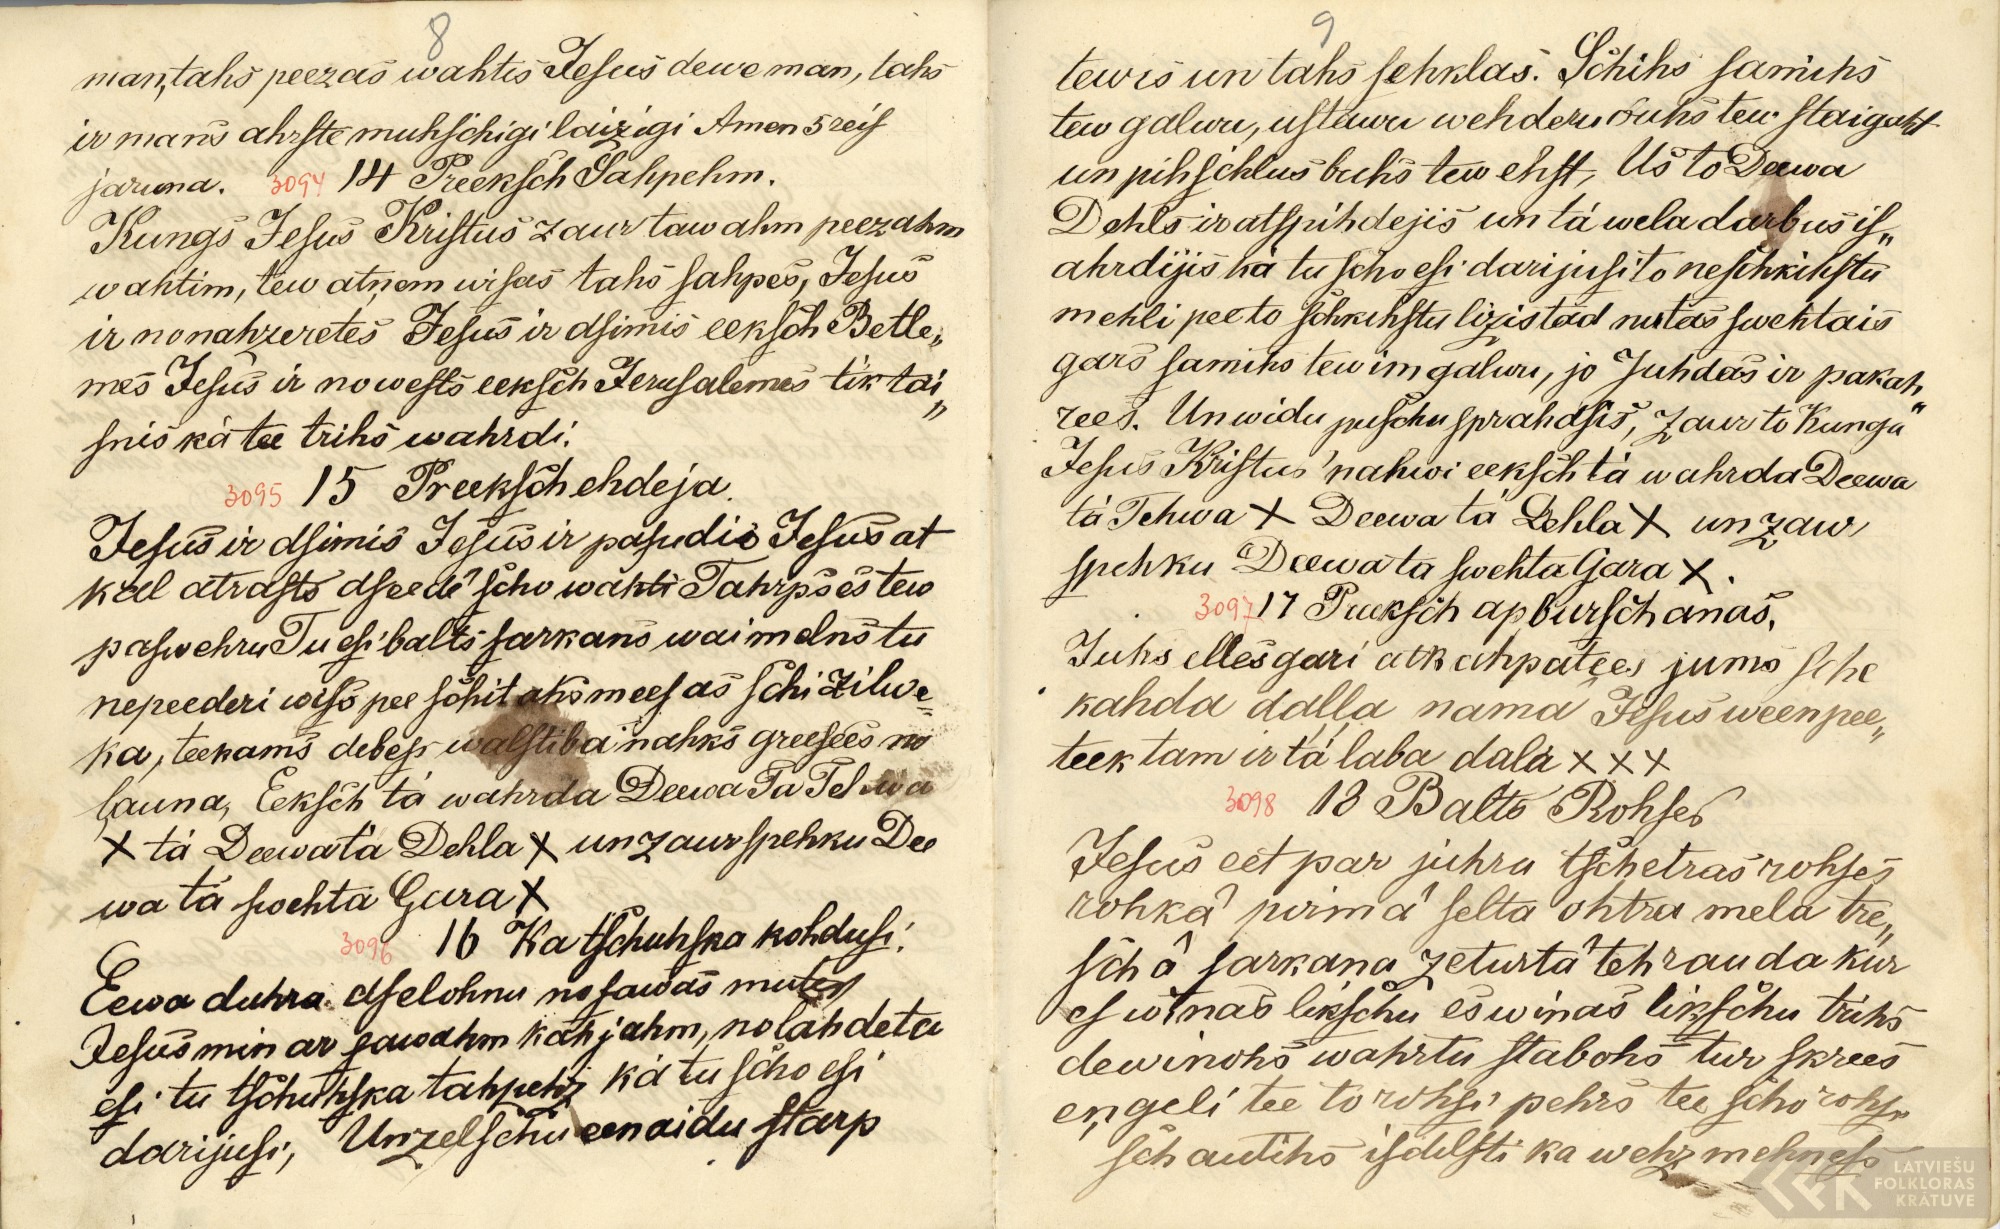 8
man, tahs peezas wahtis Jesus dewe man, tahs
ir mans ahrste muhschigi laizigi Amen 5 reis
jaruna. 3094 14 Preeksch Sahpehm.
Kungs Jesus Kristus zaur taw ahm peezahm
wahtim, tew atņem wisas tahs sahpes, Jesus
ir no nahzeretes Jesus ir dsimis eeksch Betle„
mes Jesus ir nowests eeksch Jerusalemes tik tai„
snis kà tee trihs wahrdi.
3095 15 Preeksch ehdeja.
Jesus ir dsimis Jesus ir pasudis Jesus at
kal atrasts dseedè scho wahti Tahrps es tew
paswehru Tu esi balts sarkans wai melns tu
nepeederi wiss pee schitahs meesas schi zilwe=
ka, teekams debess walstiba nahks greesees no
launa, Eeksch tà wahrda Deewa Ta Tehwa
X tà Deewa tà Dehla X un zaur spehku Dee
wa tà swehta Gara X
3096 16 Ka tschuhska kohdusi.
Eewa duhra dselohnu no sawas mutes
Jesus min ar sawahm kahjahm, nolahdeta
esi tu tschuhska tahpehz kà tu scho esi
darijusi, Un zelschu eenaidu starp
9
tewis un tahs sehklas. Schihs samihs
tew galwu, us tawu wehderu buhs tew staigaht
un pihschlus buhs tew ehst, Us to Deewa
Dehls ir atspihdejis un tà wela darbus is„
ahrdijis kà tu scho esi darijusi to neschkihstu
mehli pee to schkihstu lizis tad nu tas swehtais
gars samihs tewim galwu, jo Juhdas ir pakah„
rees. Un widu puschu sprahdsis, zaur to Kungu
Jesus Kristus nahwi eeksch tà wahrda Deewa
tà Tehwa X Deewa tà Dehla X un zaur
spehku Deewa ta swehta Gara X.
3097 17 Preeksch apburschanas.
Juhs elles gari atkahpatees jums sche
kahda daļļa nama Jesus ween pee„
teek tam ir tà laba dala X X X
3098 18 Balts Rohses
Jesus eet par juhru tschetras rohses
rohkâ pirmâ selta ohtra mela tre„
schâ sarkana zeturtâ tehrauda kur
es winas likschu es winas likschu trihs
dewinohs wahrtu stabohs tur skrees
eņgeli tee to rohsi pehrs tee scho rohsu
schautihs isdelsti ka wehz mehness
LATVIEŠU
FOLKLORAS
KRĀTUVE